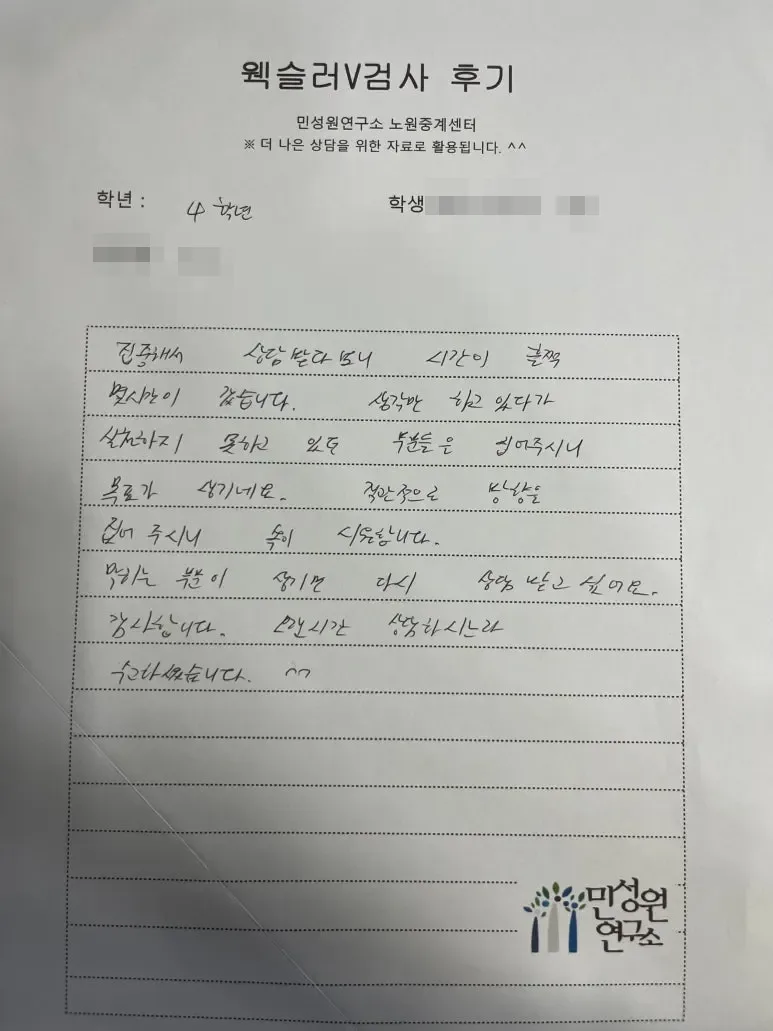 웩슬러V검사 후기
민성원연구소 노원중계센터
※ 더 나은 상담을 위한 자료로 활용됩니다. ^^
학년 : 4학년 학생
집중해서 상담받다보니 시간이 훌쩍
몇시간이 갔습니다. 생각만 하고 있다가
실천하지 못하고 있던 부분들은 집어주시니
목표가 생기네요. 직관적으로 방향을
집어 주시니 속이 시원합니다.
막히는 부분이 생기면 다시 상담 받고 싶어요.
감사합니다. 오랜시간 상담하시느라
수고하셨습니다. ^^
민성원
연구소